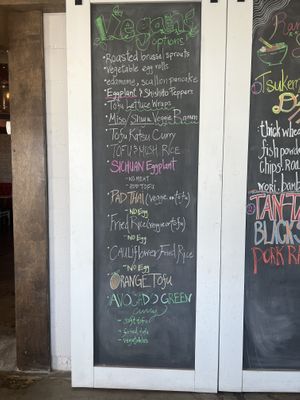 Vegan
options!
• Roasted brussel sprouts
• Vegetable egg rolls
• edamame, scallion pancake
• Eggplant & Shishito Peppers
• Tofu Lettuce Wraps
• Miso/Shoyu Veggie Ramen
• Tofu Katsu Curry
• TOFU & MUSH RICE
• SICHUAN Eggplant
- NO MEAT
- add TOFU
• PAD THAI (veggie or tofu)
- NO Egg
• Fried Rice (veggie or tofu)
- NO Egg
• CAULiflower Fried Rice
- NO Egg
• ORANGE Tofu
• AVOCADO GREEN
curry
- soft tofu
- fried tofu
- vegetables
Ra
Tsukem
thick whe
fish powd
chips. Roa
nori. bamb
TAN-TA
BLACK
PORK RA